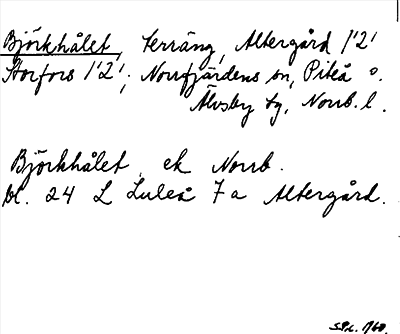 Björkhålet, terräng, Altergård 1'2'
Storfors 1'2'; Norrfjärdens sn, Piteå o.
Älvsby tg, Norrb. l.
Björkhålet ek Norrb.
bl. 24 L Luleå 7 a Altergård.